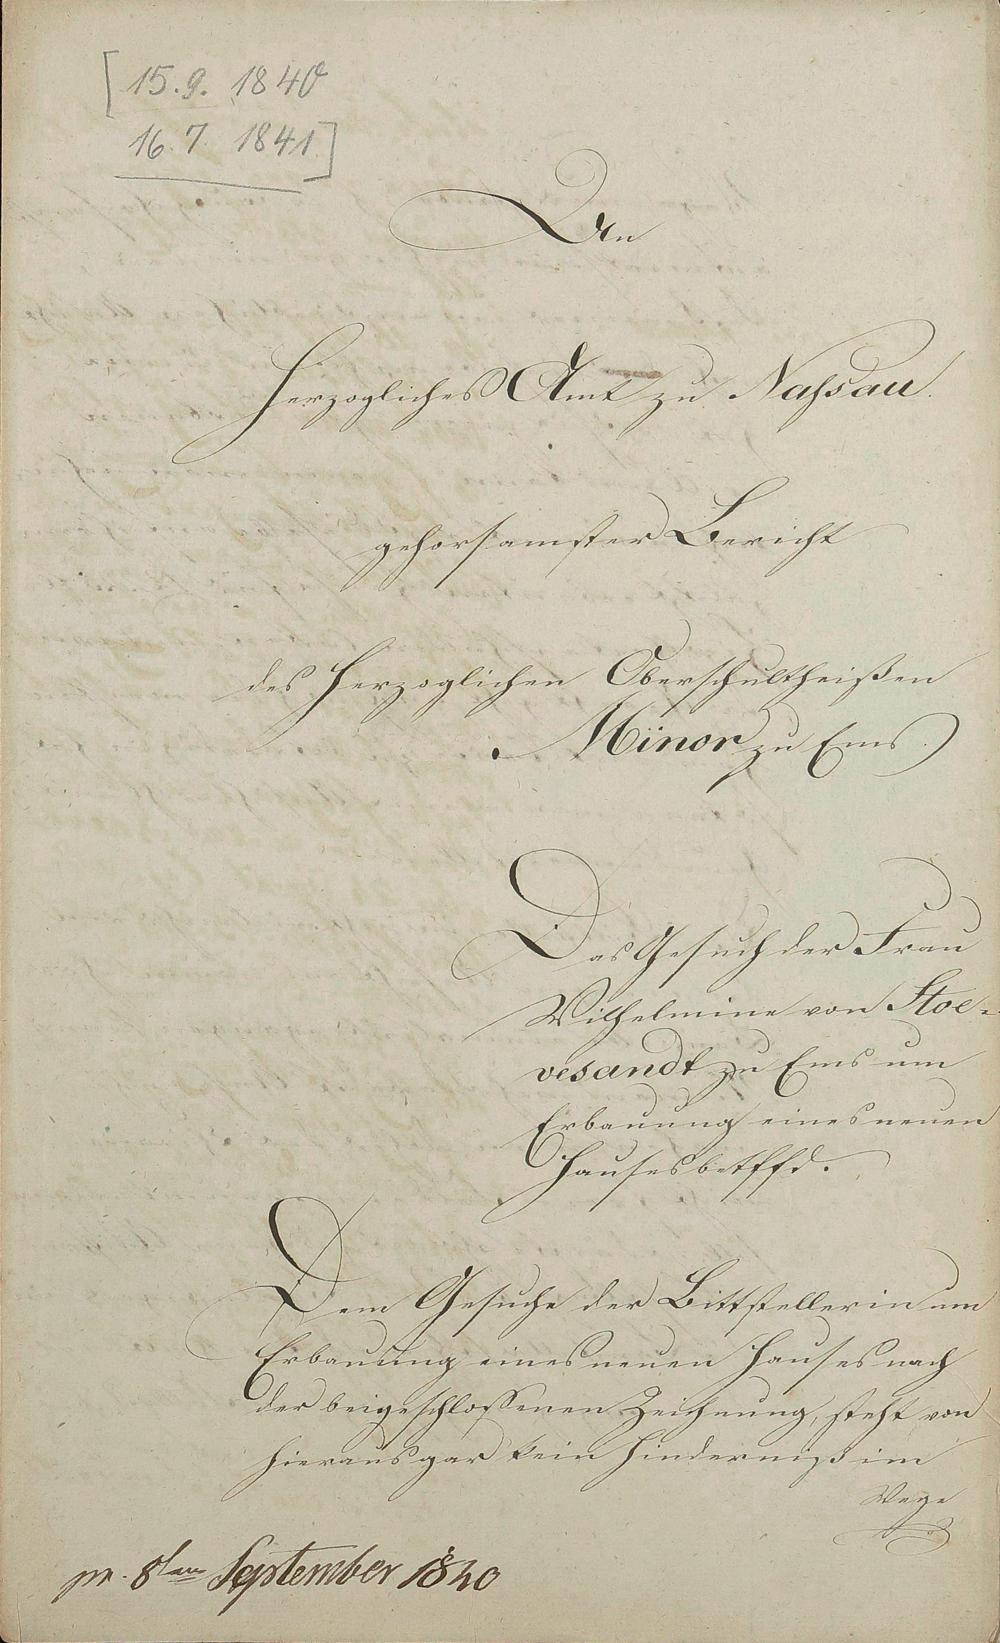 [15.9. 1840
16.7. 1841]
An
Herzogliches Amt zu Naßsau.
gehorsamster Bericht
des Herzoglichen Oberschultheißen
Minor zu Ems.
Das Gesuch der Frau
Wilhelmine von Stoe-
vesandt zu Ems um
Erbauung eines neuen
Hauses betffd.
Dem Gesuche der Bittstellerin um
Erbauung eines neuen Hauses nach
der beigeschlossenen Zeichnung, steht von
hieraus gar kein Hinderniß im
Wege
pr. 8ten September 1840